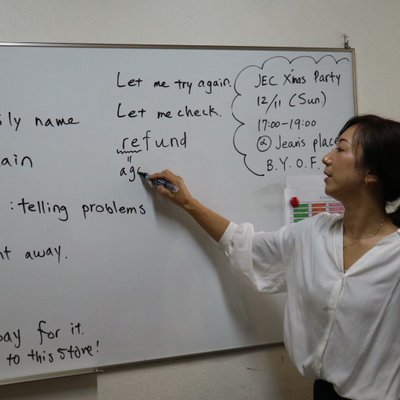 ily name
ain
: telling problems
t away.
ay for it.
to this store!
Let me try again.
Let me check.
refund
"
aga
JEC X'mas Party
12/11 (Sun.)
17:00-19:00
@ Jean's place
B.Y.O.F.